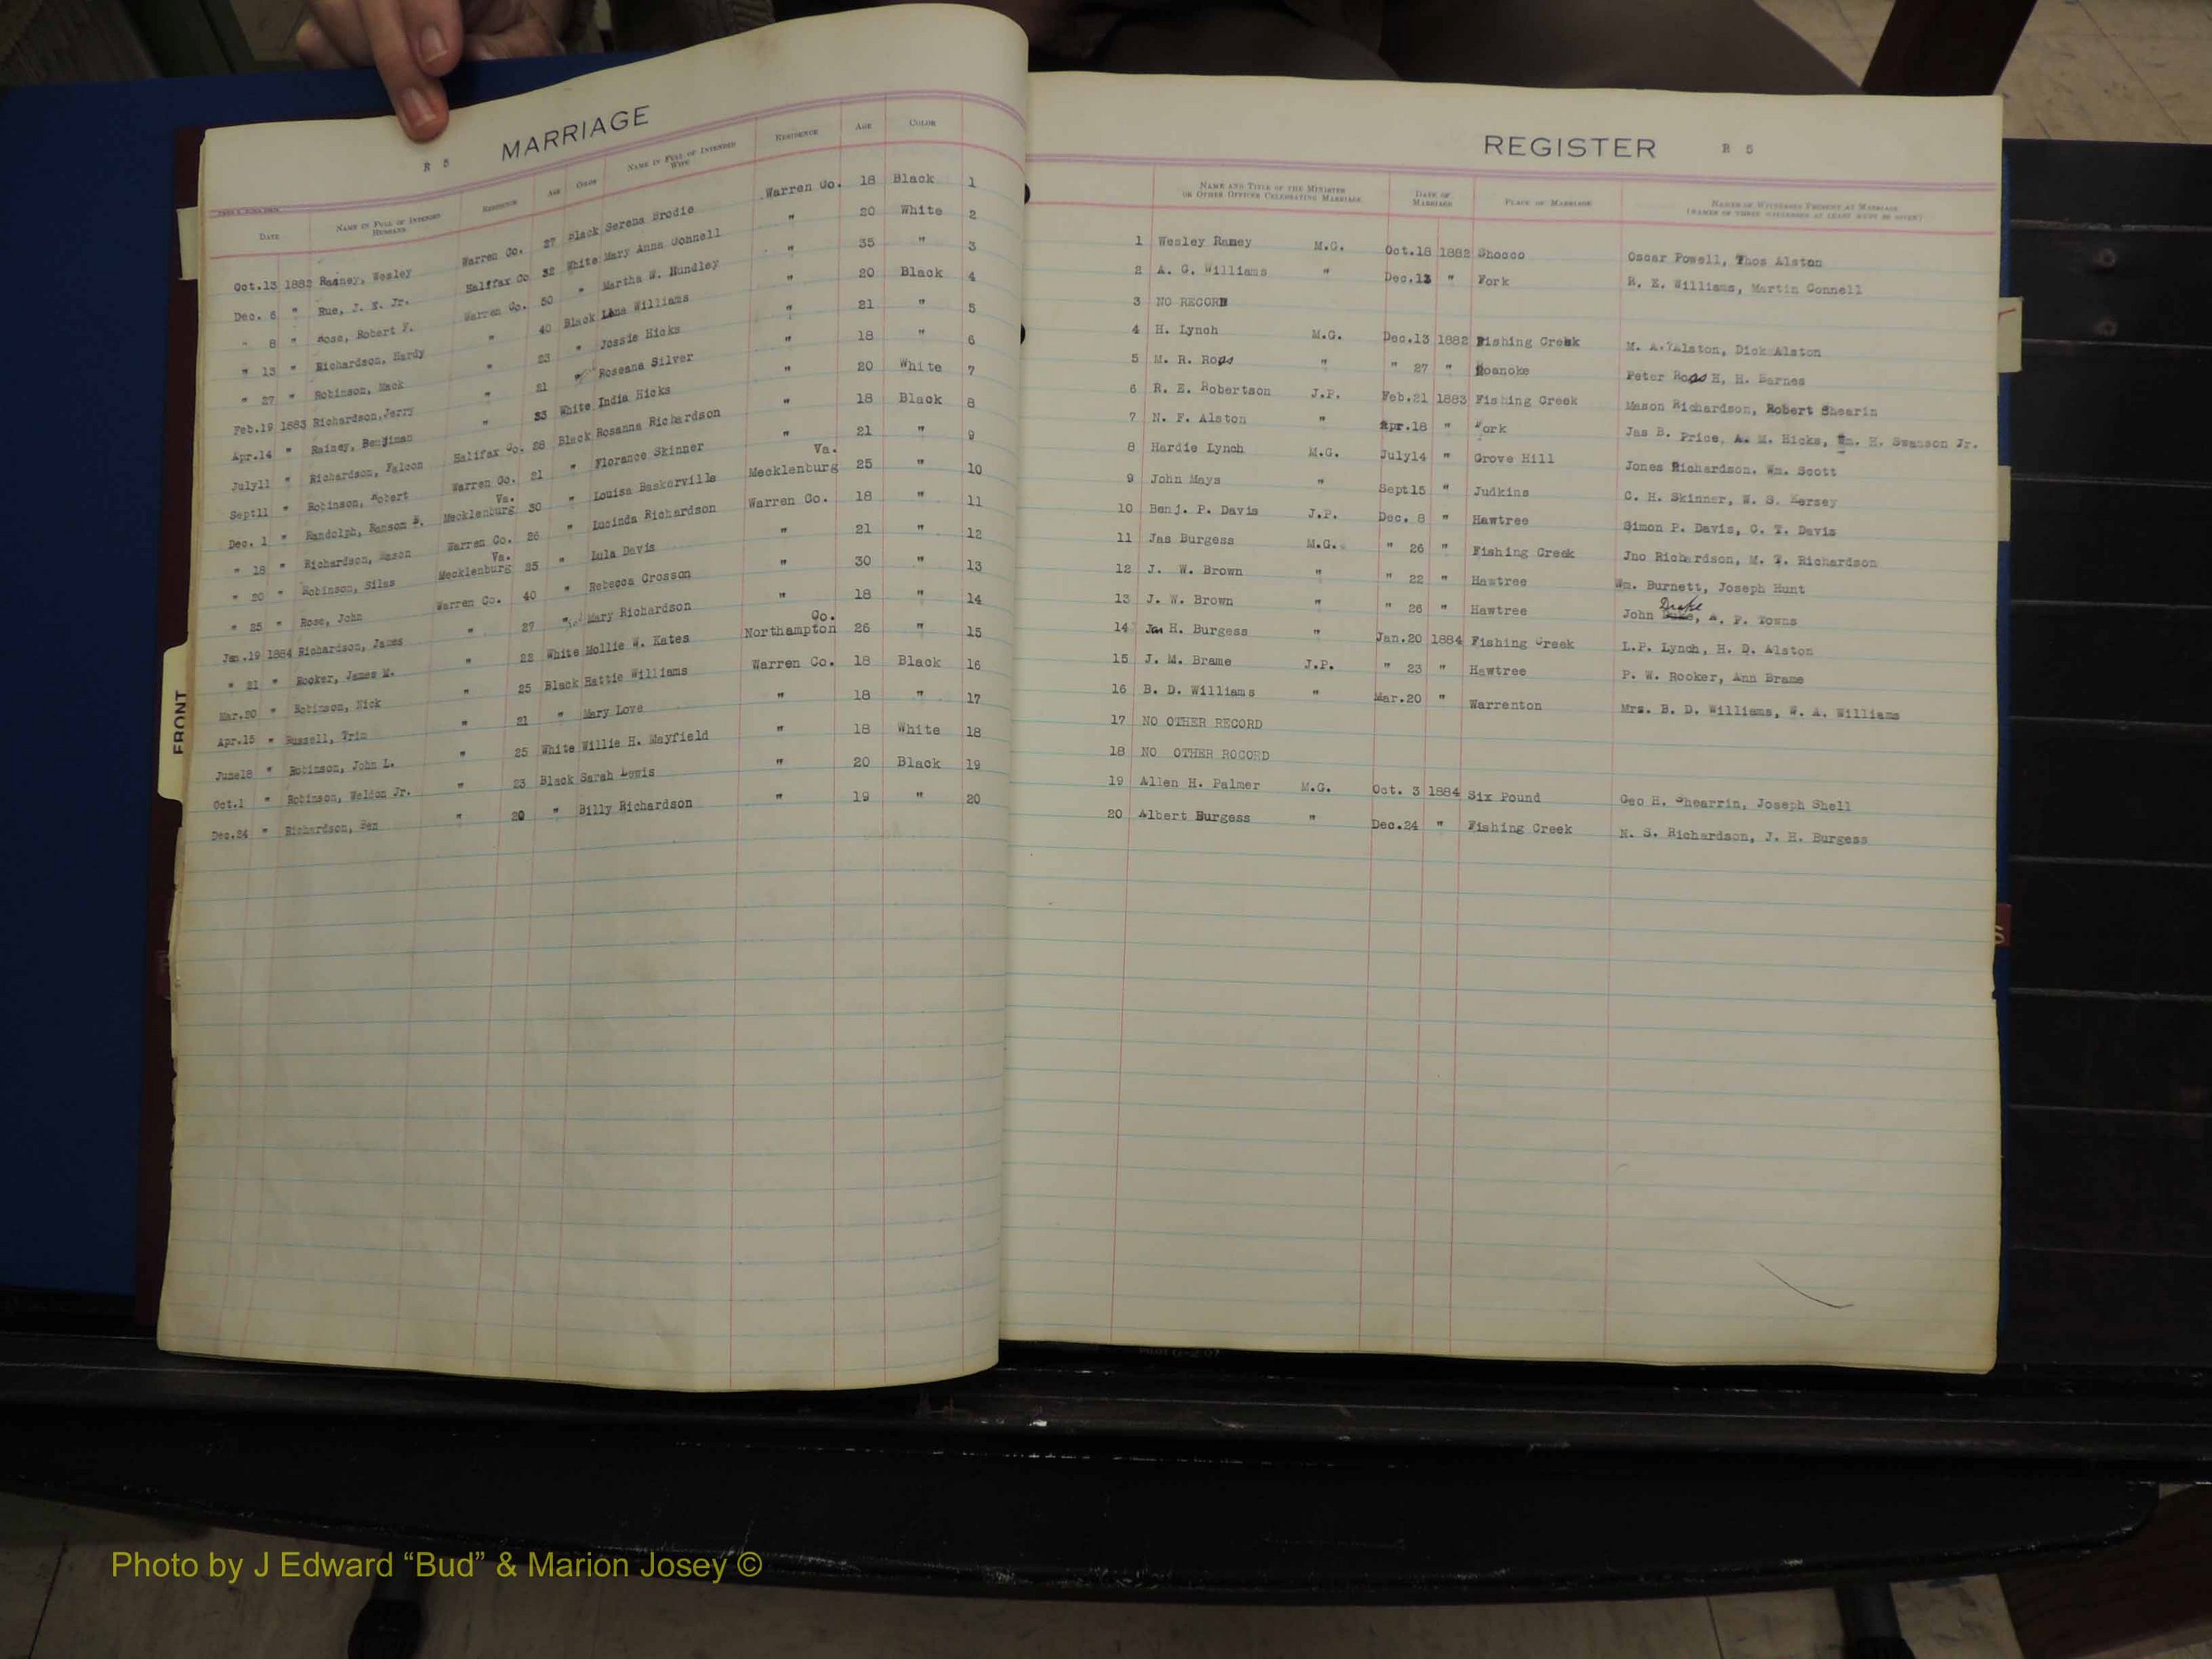 R 5 MARRIAGE
DATE NAME IN FULL OF INTENDED HUSBAND RESIDENCE AGE COLOR NAME IN FULL OF INTENDED WIFE RESIDENCE AGE COLOR
Oct.13 1882 Rainey, Wesley Warren Co. 27 Black Serena Brodie Warren Co. 18 Black 1
Dec. 6 " Rue, J. E. Jr. Halifax Co 32 White Mary Anna Connell " 20 White 2
" 8 " Rose, Robert F. Warren Co. 50 " Martha W. Hundley " 35 " 3
" 13 " Richardson, Hardy " 40 Black Lena Williams " 20 Black 4
" 27 " Robinson, Mack " 23 " Jossie Hicks " 21 " 5
Feb.19 1883 Richardson,Jerry " 21 " Roseana Silver " 18 " 6
Apr.14 " Rainey, Benjiman " 33 White India Hicks " 20 White 7
July11 " Richardson, Falcon Halifax Co. 28 Black Rosanna Richardson " 18 Black 8
Sept11 " Robinson, Robert Warren Co. 21 " Florance Skinner " 21 " 9
Dec. 1 " Randolph, Ransom B. Va. Mecklenburg 30 " Louisa Baskerville Va. Mecklenburg 25 " 10
" 18 " Richardson, Mason Warren Co. 26 " Lucinda Richardson Warren Co. 18 " 11
" 20 " Robinson, Silas Va. Mecklenburg 25 " Lula Davis " 21 " 12
" 25 " Rose, John Warren Co. 40 " Rebecca Crosson " 30 " 13
Jan.19 1884 Richardson, James " 27 " Mary Richardson " 18 " 14
" 21 " Rooker, James M. " 22 White Mollie W. Kates Co. Northampton 26 " 15
Mar.20 " Robinson, Nick " 25 Black Hattie Williams Warren Co. 18 Black 16
Apr.15 " Russell, Trim " 21 " Mary Love " 18 " 17
June18 " Robinson, John L. " 25 White Willie H. Mayfield " 18 White 18
Oct.1 " Robinson, Weldon Jr. " 23 Black Sarah Lewis " 20 Black 19
Dec.24 " Richardson, Ben " 20 " Billy Richardson " 19 " 20
FRONT
REGISTER R 5
NAME AND TITLE OF THE MINISTER OR OTHER OFFICER CELEBRATING MARRIAGE DATE OF MARRIAGE PLACE OF MARRIAGE NAMES OF WITNESSES PRESENT AT MARRIAGE (NAMES OF THREE WITNESSES AT LEAST MUST BE GIVEN)
1 Wesley Ramey M.G. Oct.18 1882 Shocco Oscar Powell, Thos Alston
2 A. G. Williams " Dec.13 " Fork R. E. Williams, Martin Connell
3 NO RECORD
4 H. Lynch M.G. Dec.13 1882 Fishing Creek M. A. Alston, Dick Alston
5 M. R. Ross " " 27 " Roanoke Peter Ross H, H. Barnes
6 R. E. Robertson J.P. Feb.21 1883 Fishing Creek Mason Richardson, Robert Shearin
7 N. F. Alston " Apr.18 " Fork Jas B. Price, A. M. Hicks, Wm. H. Swanson Jr.
8 Hardie Lynch M.G. July14 " Grove Hill Jones Richardson. Wm. Scott
9 John Mays " Sept15 " Judkins C. H. Skinner, W. S. Kersey
10 Benj. P. Davis J.P. Dec. 8 " Hawtree Simon P. Davis, C. T. Davis
11 Jas Burgess M.G. " 26 " Fishing Creek Jno Richardson, M. T. Richardson
12 J. W. Brown " " 22 " Hawtree Wm. Burnett, Joseph Hunt
13 J. W. Brown " " 26 " Hawtree John Drake, A. P. Towns
14 J. H. Burgess " Jan.20 1884 Fishing Creek L.P. Lynch, H. D. Alston
15 J. M. Brame J.P. " 23 " Hawtree P. W. Rooker, Ann Brame
16 B. D. Williams " Mar.20 " Warrenton Mrs. B. D. Williams, W. A. Williams
17 NO OTHER RECORD
18 NO OTHER ROCORD
19 Allen H. Palmer M.G. Oct. 3 1884 Six Pound Geo H. Shearrin, Joseph Shell
20 Albert Burgess " Dec.24 " Fishing Creek N. S. Richardson, J. H. Burgess
Photo by J Edward “Bud” & Marion Josey ©